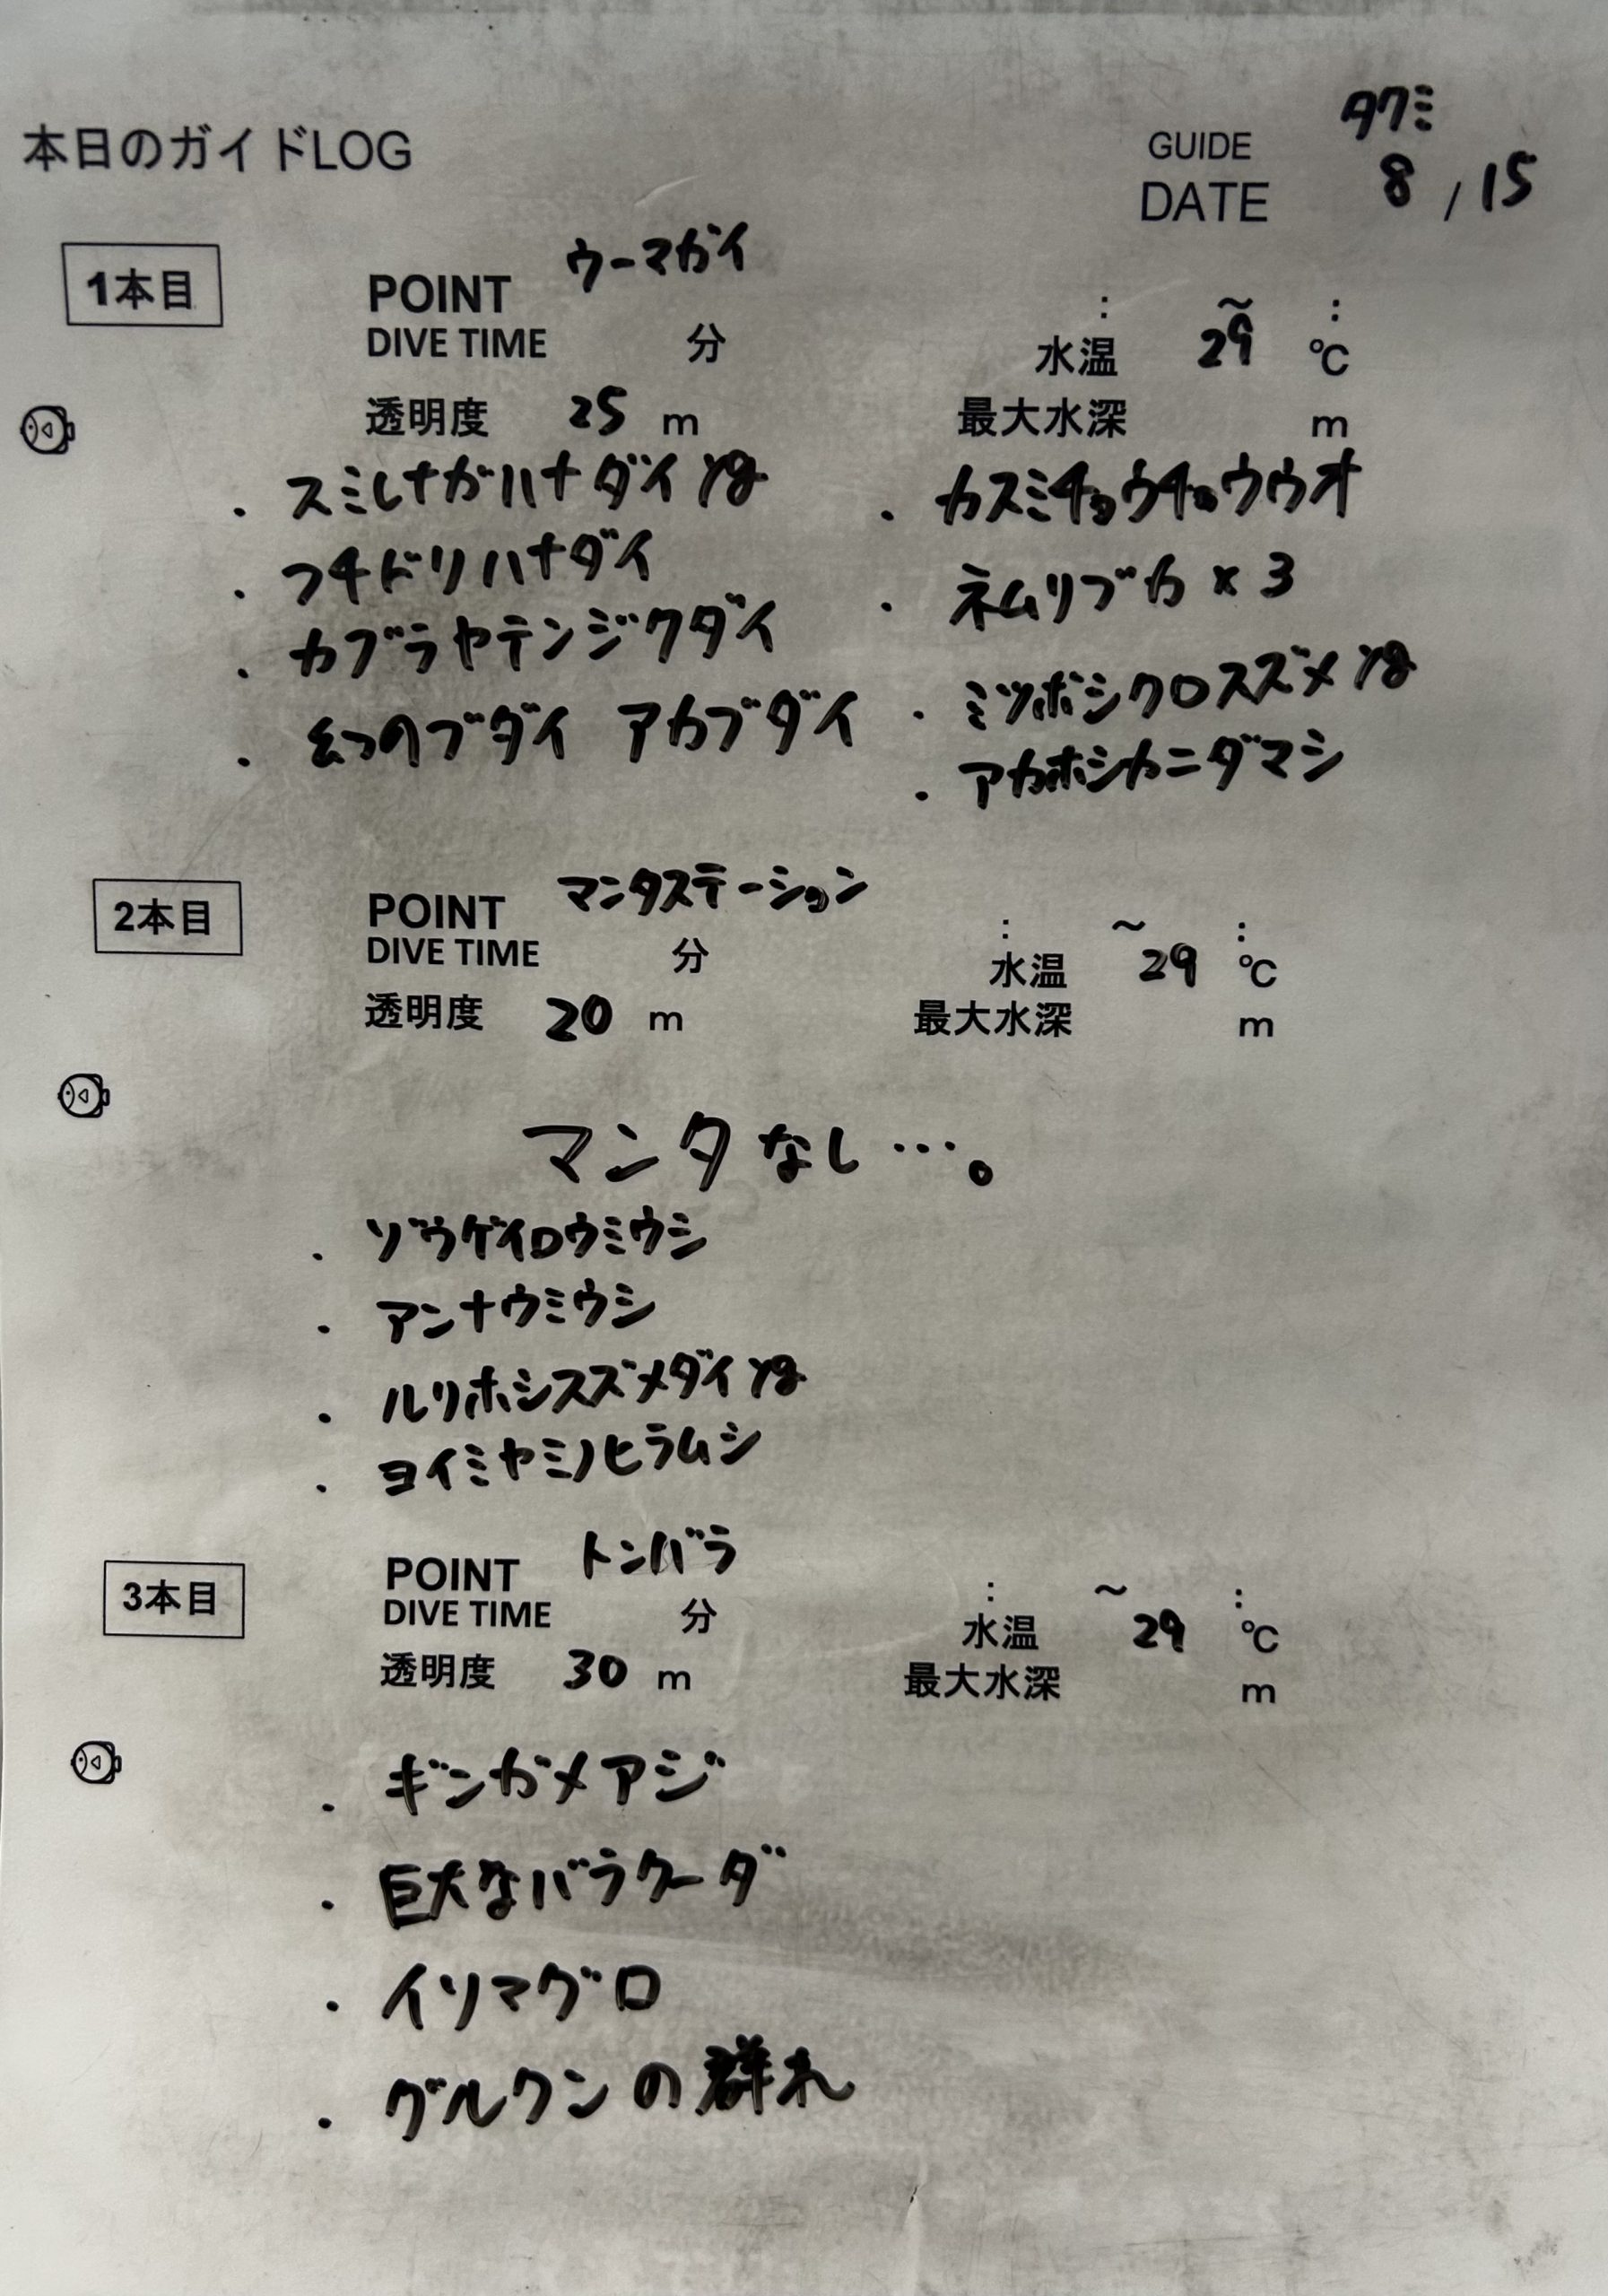 本日のガイドLOG
GUIDE タクミ
DATE 8/15
1本目
POINT ウーマガイ
: ～ :
DIVE TIME 分
水温 29 ℃
透明度 25 m
最大水深 m
・スミレナガハナダイyg
・フチドリハナダイ
・カブラヤテンジクダイ
・幻のブダイ アカブダイ
・カスミチョウチョウウオ
・ネムリブカ×3
・ミツボシクロスズメyg
・アカホシカニダマシ
2本目
POINT マンタステーション
: ～ :
DIVE TIME 分
水温 29 ℃
透明度 20 m
最大水深 m
マンタなし…。
・ゾウゲイロウミウシ
・アンナウミウシ
・ルリホシスズメダイyg
・ヨイミヤミノヒラムシ
3本目
POINT トンバラ
: ～ :
DIVE TIME 分
水温 29 ℃
透明度 30 m
最大水深 m
・ギンガメアジ
・巨大なバラクーダ
・イソマグロ
・グルクンの群れ